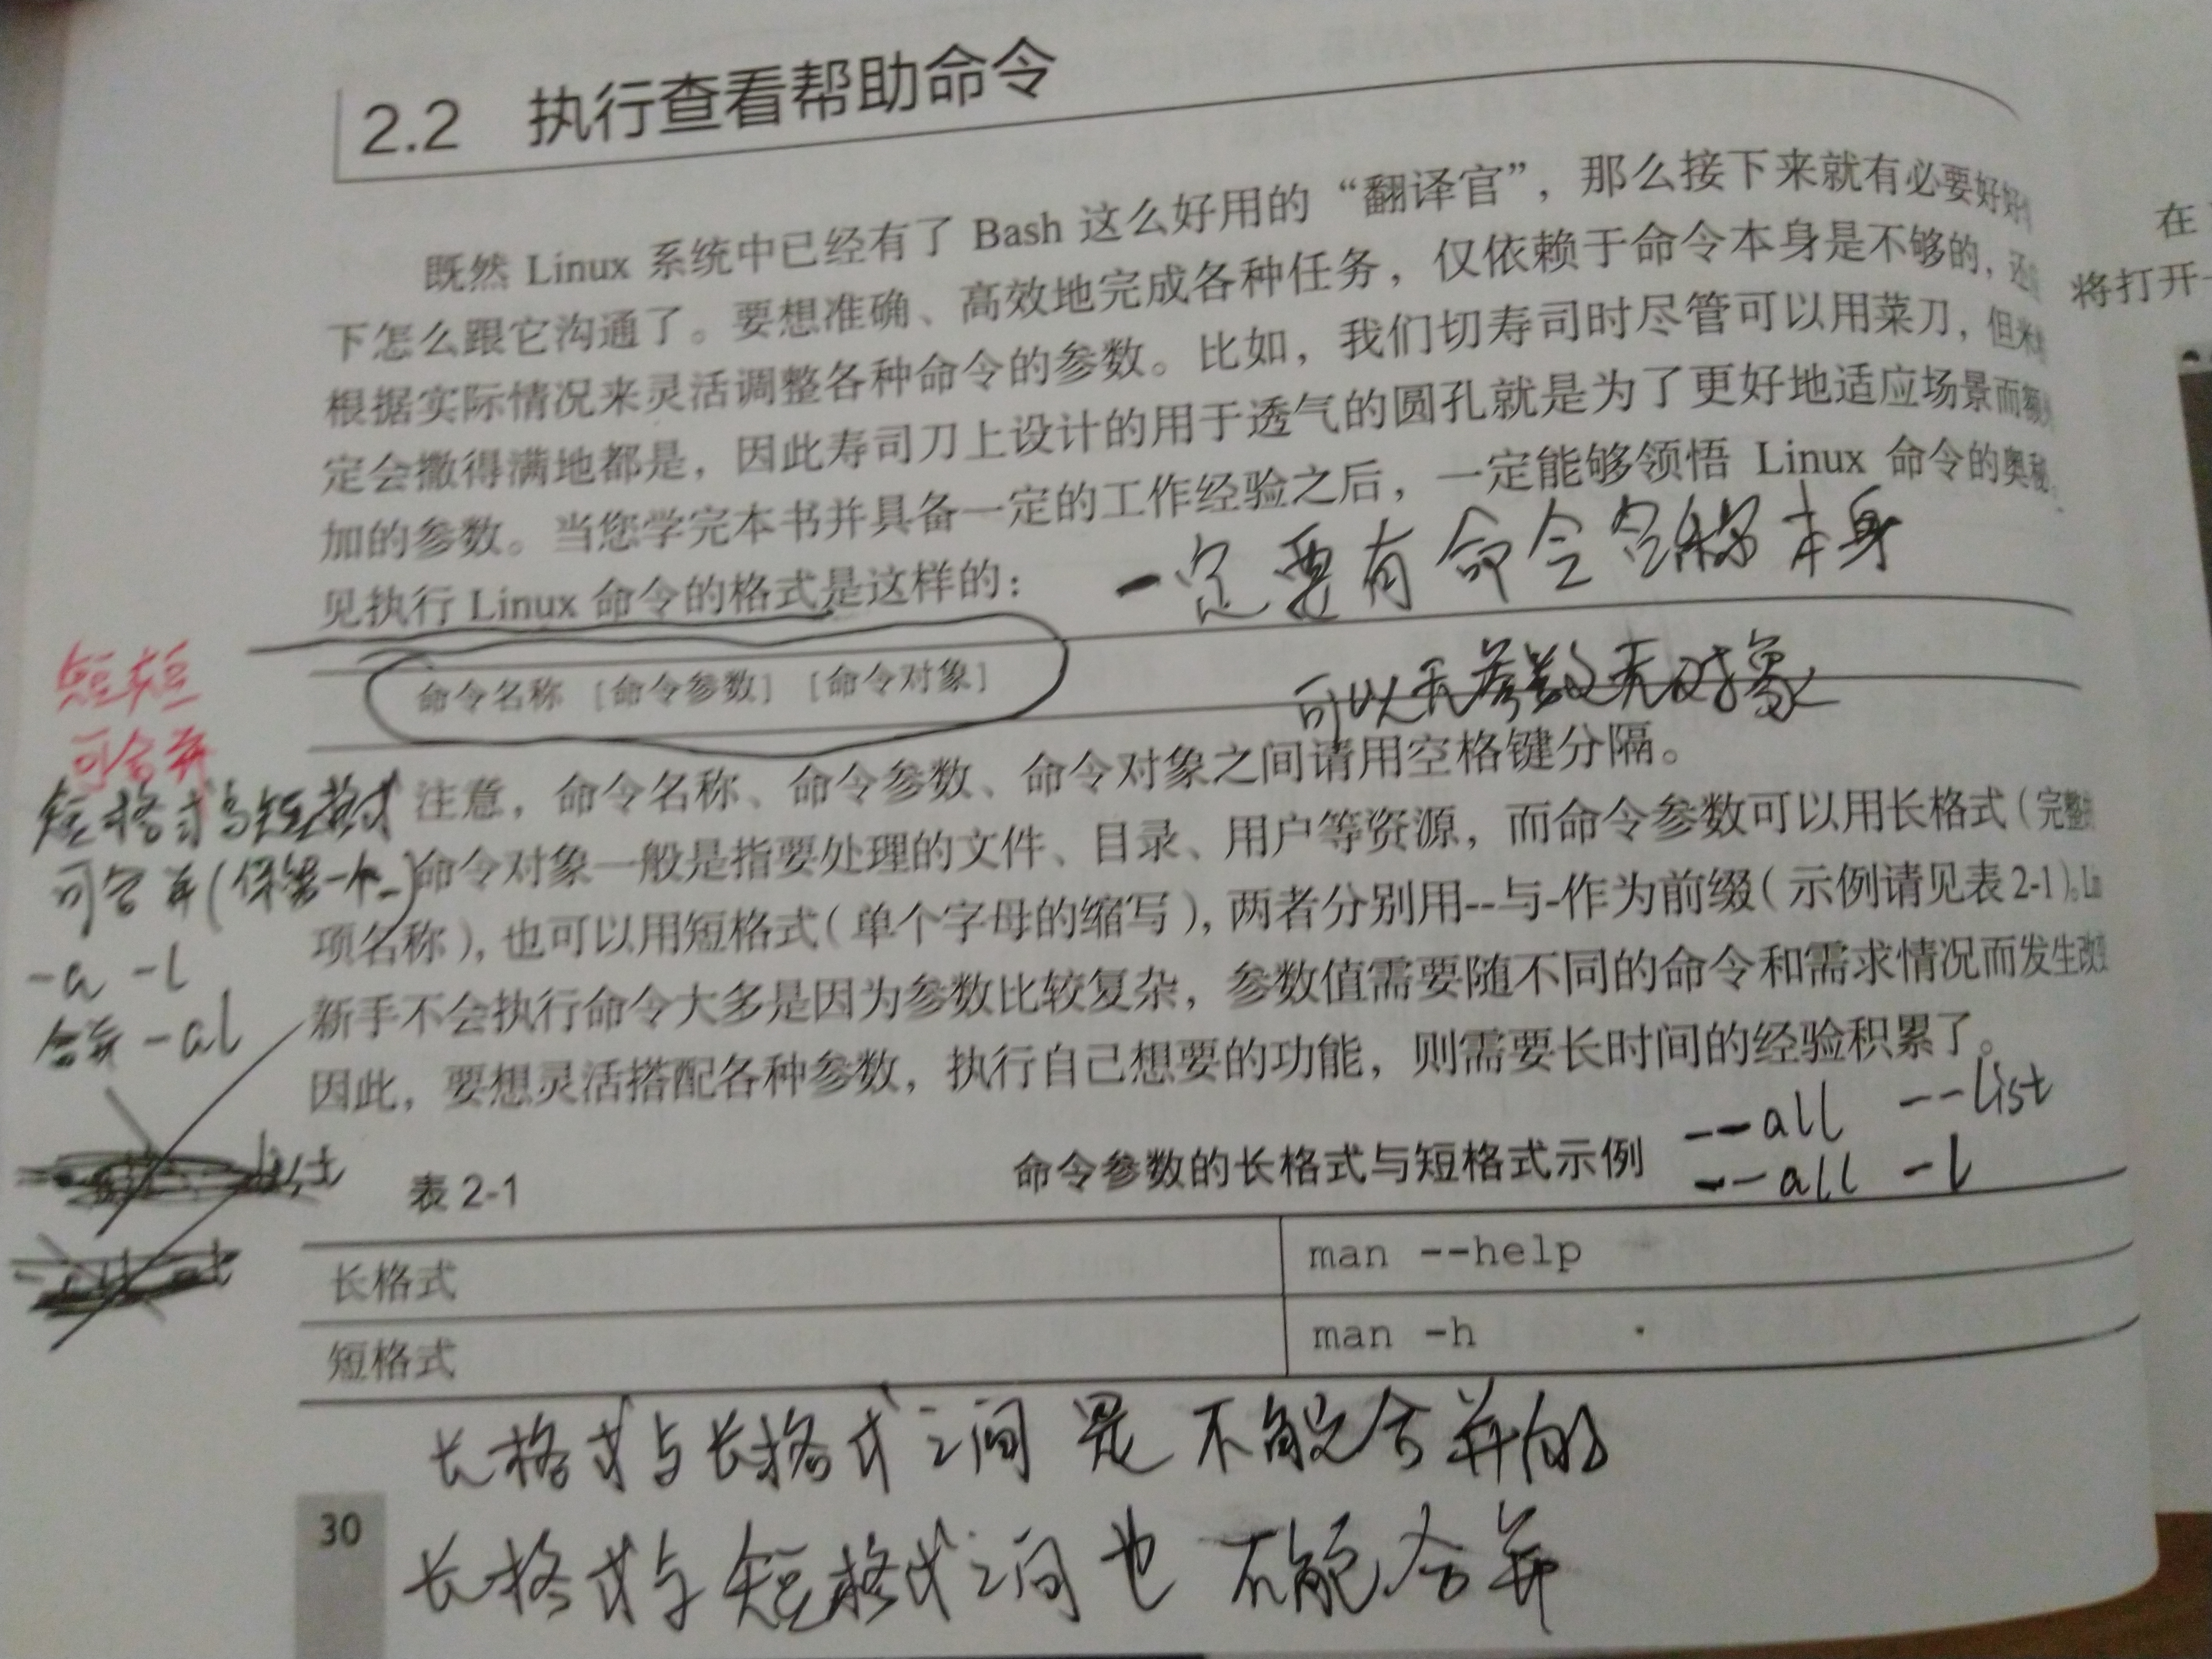 2.2 执行查看帮助命令
既然 Linux 系统中已经有了 Bash 这么好用的“翻译官”，那么接下来就有必要好好
下怎么跟它沟通了。要想准确、高效地完成各种任务，仅依赖于命令本身是不够的，还
根据实际情况来灵活调整各种命令的参数。比如，我们切寿司时尽管可以用菜刀，但米
定会撒得满地都是，因此寿司刀上设计的用于透气的圆孔就是为了更好地适应场景而额
加的参数。当您学完本书并具备一定的工作经验之后，一定能够领悟 Linux 命令的奥秘。
见执行 Linux 命令的格式是这样的：
一定要有命令名称本身
命令名称 [命令参数] [命令对象]
可以无参数无对象
短短
可合并
短格式与短格式
可合并(保留一个-)
-a -l
合并 -al
注意，命令名称、命令参数、命令对象之间请用空格键分隔。
命令对象一般是指要处理的文件、目录、用户等资源，而命令参数可以用长格式（完整
项名称），也可以用短格式（单个字母的缩写），两者分别用--与-作为前缀（示例请见表 2-1）。
新手不会执行命令大多是因为参数比较复杂，参数值需要随不同的命令和需求情况而发生改变
因此，要想灵活搭配各种参数，执行自己想要的功能，则需要长时间的经验积累了。
--all --list
--all -l
表 2-1 命令参数的长格式与短格式示例
长格式 man --help
短格式 man -h
长格式与长格式之间是不能合并的
长格式与短格式之间也不能合并
30
在
将打开